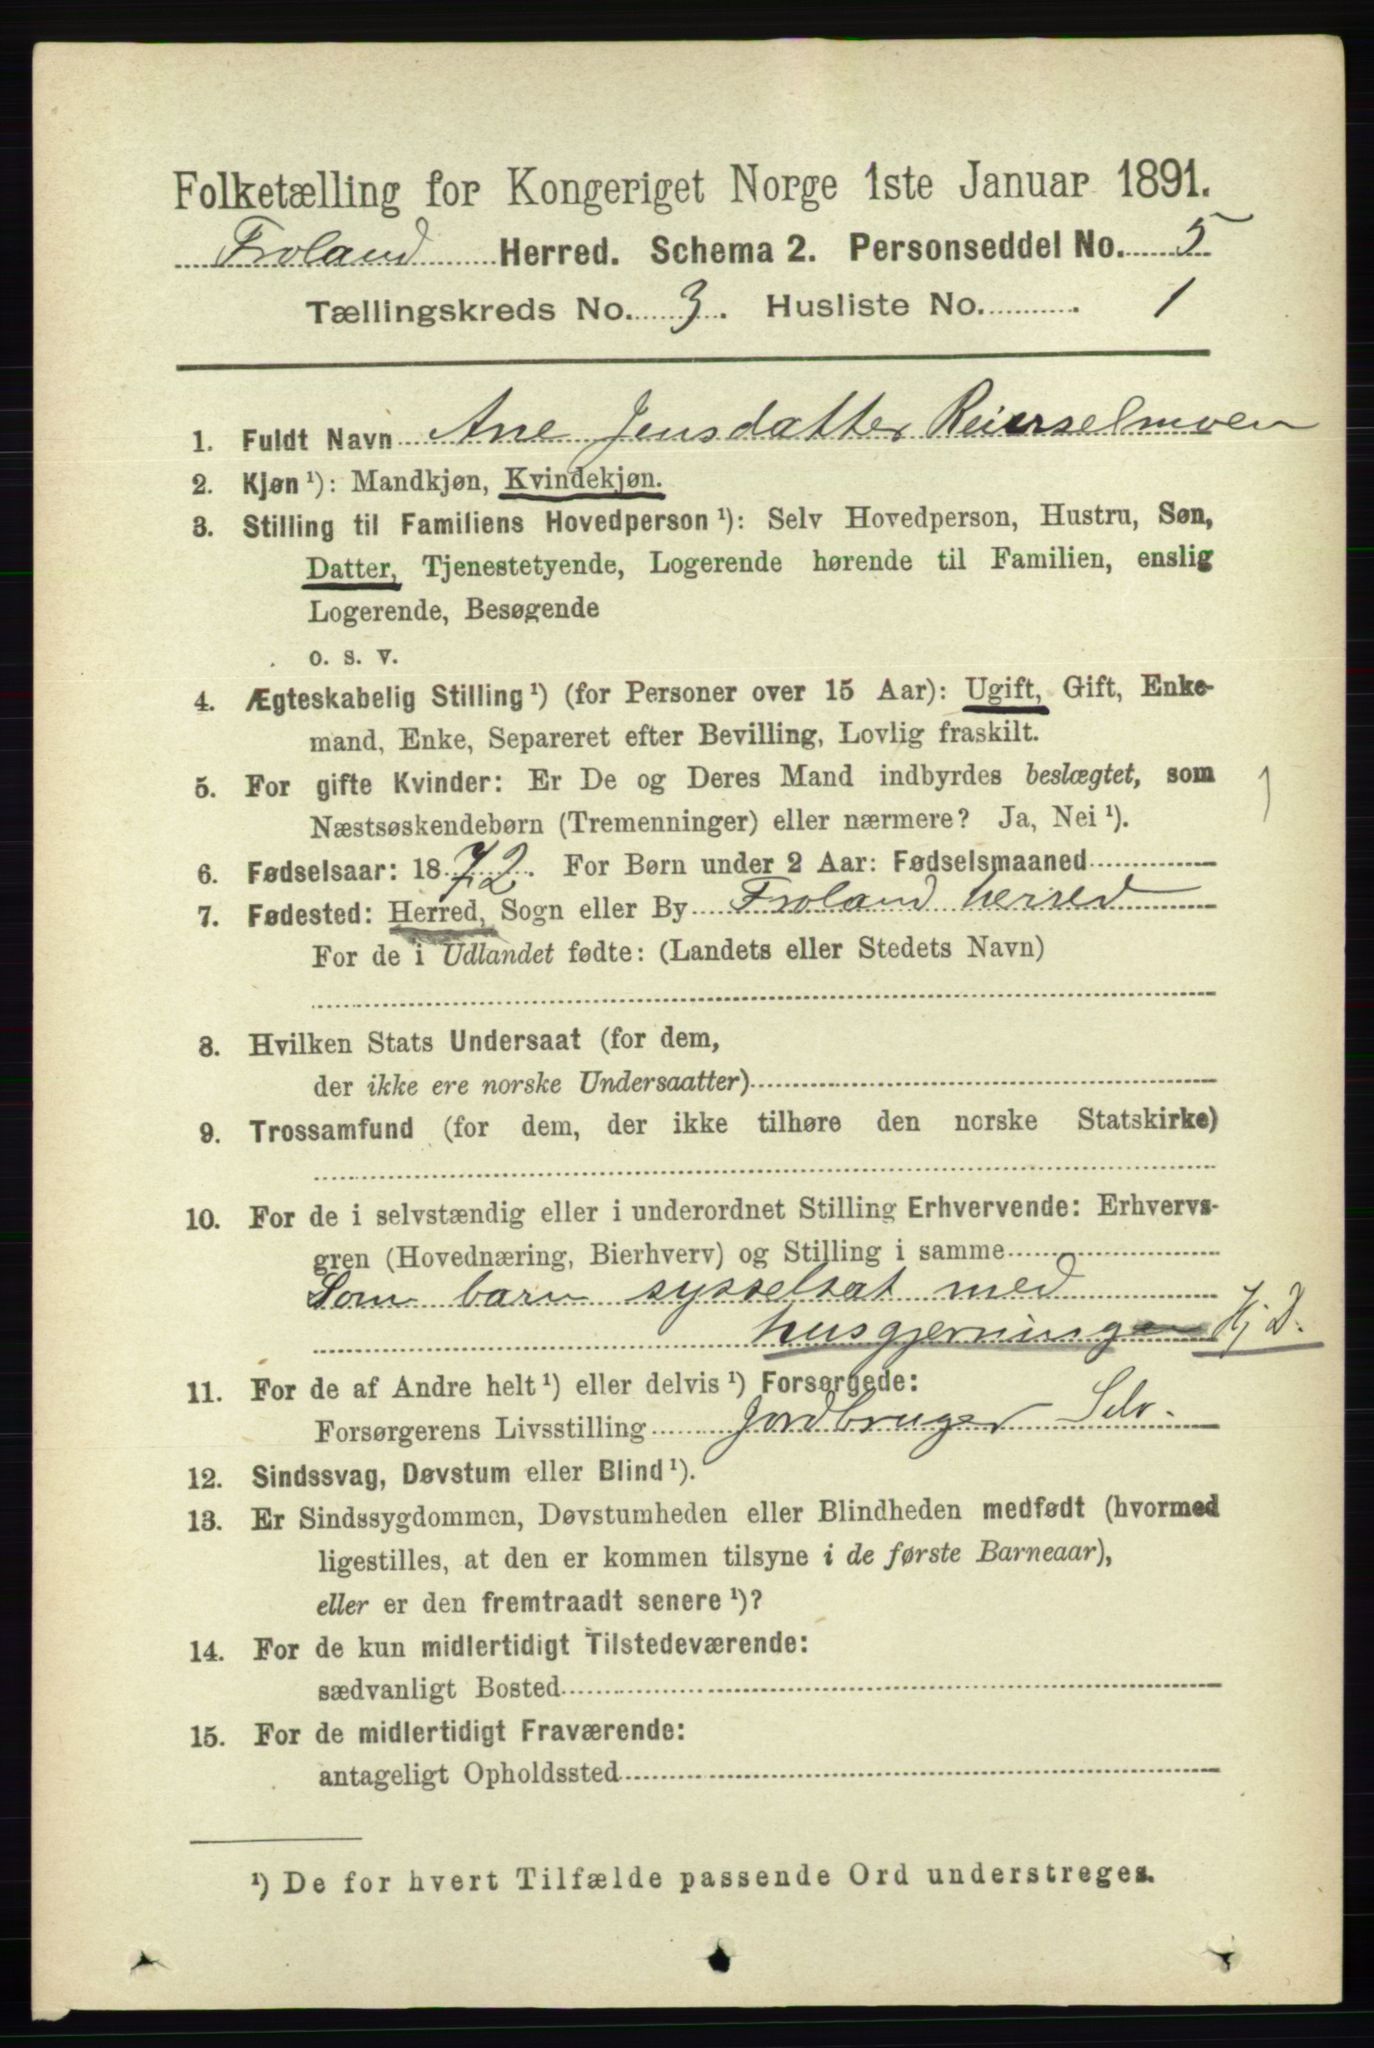 Folketælling for Kongeriget Norge 1ste Januar 1891.
Froland Herred. Schema 2. Personseddel No. 5
Tællingskreds No. 3. Husliste No. 1
1. Fuldt Navn Ane Jensdatter Reierselmoen
2. Kjøn ¹): Mandkjøn, Kvindekjøn.
3. Stilling til Familiens Hovedperson ¹): Selv Hovedperson, Hustru, Søn,
Datter, Tjenestetyende, Logerende hørende til Familien, enslig
Logerende, Besøgende
o. s. v.
4. Ægteskabelig Stilling ¹) (for Personer over 15 Aar): Ugift, Gift, Enke-
mand, Enke, Separeret efter Bevilling, Lovlig fraskilt.
5. For gifte Kvinder: Er De og Deres Mand indbyrdes beslægtet, som
Næstsøskendebørn (Tremenninger) eller nærmere? Ja, Nei ¹).
6. Fødselsaar: 1872. For Børn under 2 Aar: Fødselsmaaned
7. Fødested: Herred, Sogn eller By Froland herred
For de i Udlandet fødte: (Landets eller Stedets Navn)
8. Hvilken Stats Undersaat (for dem,
der ikke ere norske Undersaatter)
9. Trossamfund (for dem, der ikke tilhøre den norske Statskirke)
10. For de i selvstændig eller i underordnet Stilling Erhvervende: Erhvervs-
gren (Hovednæring, Bierhverv) og Stilling i samme
Som barn sysselsat med
husgjerninger Hj D.
11. For de af Andre helt ¹) eller delvis ¹) Forsørgede:
Forsørgerens Livsstilling Jordbruger Selv.
12. Sindssvag, Døvstum eller Blind ¹).
13. Er Sindssygdommen, Døvstumheden eller Blindheden medfødt (hvormed
ligestilles, at den er kommen tilsyne i de første Barneaar),
eller er den fremtraadt senere ¹)?
14. For de kun midlertidigt Tilstedeværende:
sædvanligt Bosted
15. For de midlertidigt Fraværende:
antageligt Opholdssted
¹) De for hvert Tilfælde passende Ord understreges.